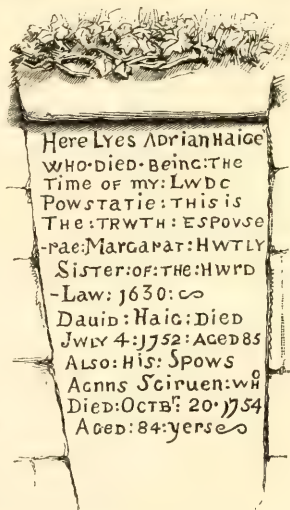 Here Lyes Adrian Haice
who·Died·Beinc:The
Time of my: Lwdc
Powstatie: This is
The: Trwth: Espovse
-rae: Margarat: Hwtly
Sister: of: the: Hwrd
-Law: 1630:
Dauid: Haig: Died
Jwly 4: 1752: Aged 85
Also: His: Spows
Agnns Sciruen: who
Died: Octbr: 20· 1754
Aged: 84: yers